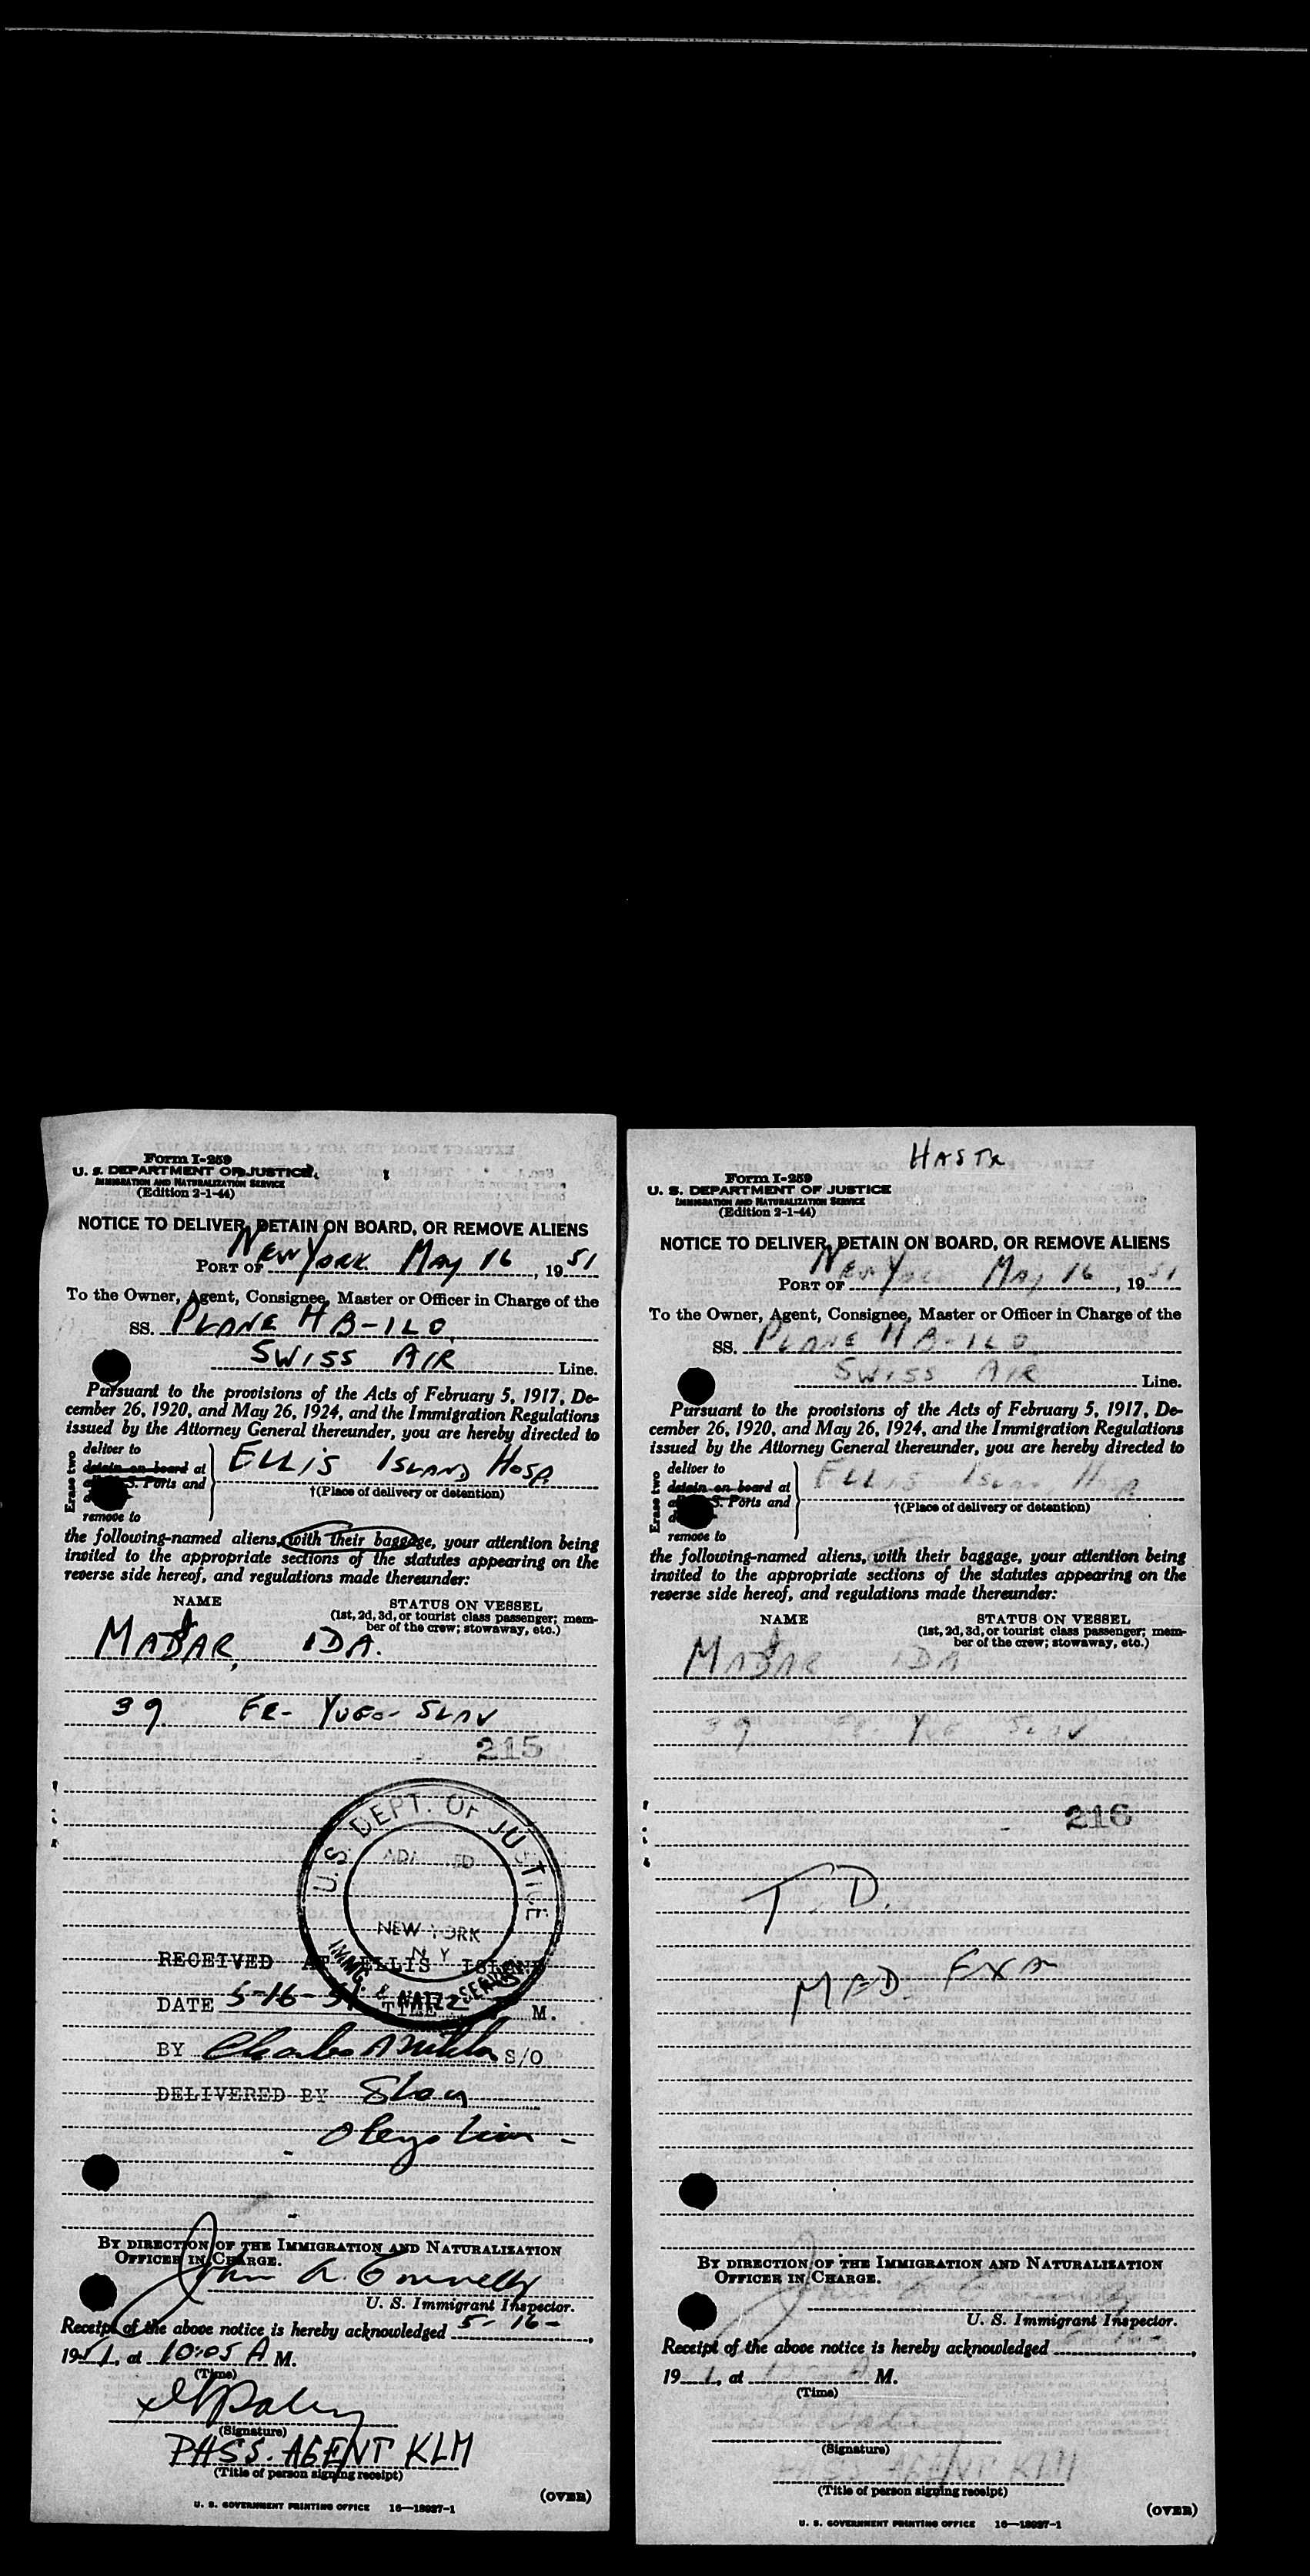 Form I-259
U. S. DEPARTMENT OF JUSTICE
IMMIGRATION AND NATURALIZATION SERVICE
(Edition 2-1-44)
NOTICE TO DELIVER, DETAIN ON BOARD, OR REMOVE ALIENS
PORT OF NEW YORK MAY 16, 1951
To the Owner, Agent, Consignee, Master or Officer in Charge of the
SS. PLANE HB-ILO
SWISS AIR Line.
Pursuant to the provisions of the Acts of February 5, 1917, De-
cember 26, 1920, and May 26, 1924, and the Immigration Regulations
issued by the Attorney General thereunder, you are hereby directed to
Erase two
deliver to
detain on board at
S. Ports and
remove to
ELLIS ISLAND HOSP.
†(Place of delivery or detention)
the following-named aliens, with their baggage, your attention being
invited to the appropriate sections of the statutes appearing on the
reverse side hereof, and regulations made thereunder:
NAME
STATUS ON VESSEL
(1st, 2d, 3d, or tourist class passenger; mem-
ber of the crew; stowaway, etc.)
IDA.
39 FR- YUGO- SLAV
215
U.S. DEPT. OF JUSTICE
ADMITTED
NEW YORK
N Y
IMMG. & NATZ SERVICE
RECEIVED AT ELLIS ISLAND
DATE 5-16-51 TIME M.
BY Charles S/O
DELIVERED BY
BY DIRECTION OF THE IMMIGRATION AND NATURALIZATION
OFFICER IN CHARGE.
John A. Connelly
U. S. Immigrant Inspector.
Receipt of the above notice is hereby acknowledged 5-16-,
1951, at 10:05 A M.
(Time)
(Signature)
PASS. AGENT KLM
(Title of person signing receipt)
(OVER)
U. S. GOVERNMENT PRINTING OFFICE 16—18027-1
Form I-259
U. S. DEPARTMENT OF JUSTICE
IMMIGRATION AND NATURALIZATION SERVICE
(Edition 2-1-44)
NOTICE TO DELIVER, DETAIN ON BOARD, OR REMOVE ALIENS
PORT OF NEW YORK MAY 16, 1951
To the Owner, Agent, Consignee, Master or Officer in Charge of the
SS. PLANE HB-ILO
SWISS AIR Line.
Pursuant to the provisions of the Acts of February 5, 1917, De-
cember 26, 1920, and May 26, 1924, and the Immigration Regulations
issued by the Attorney General thereunder, you are hereby directed to
Erase two
deliver to
detain on board at
S. Ports and
remove to
ELLIS ISLAND HOSP
†(Place of delivery or detention)
the following-named aliens, with their baggage, your attention being
invited to the appropriate sections of the statutes appearing on the
reverse side hereof, and regulations made thereunder:
NAME
STATUS ON VESSEL
(1st, 2d, 3d, or tourist class passenger; mem-
ber of the crew; stowaway, etc.)
IDA
39 FR- YUG SLAV
216
T. D.
MED. EXA
BY DIRECTION OF THE IMMIGRATION AND NATURALIZATION
OFFICER IN CHARGE.
U. S. Immigrant Inspector.
Receipt of the above notice is hereby acknowledged
19 1, at A M.
(Time)
(Signature)
PASS AGENT KLM
(Title of person signing receipt)
(OVER)
U. S. GOVERNMENT PRINTING OFFICE 16—18027-1